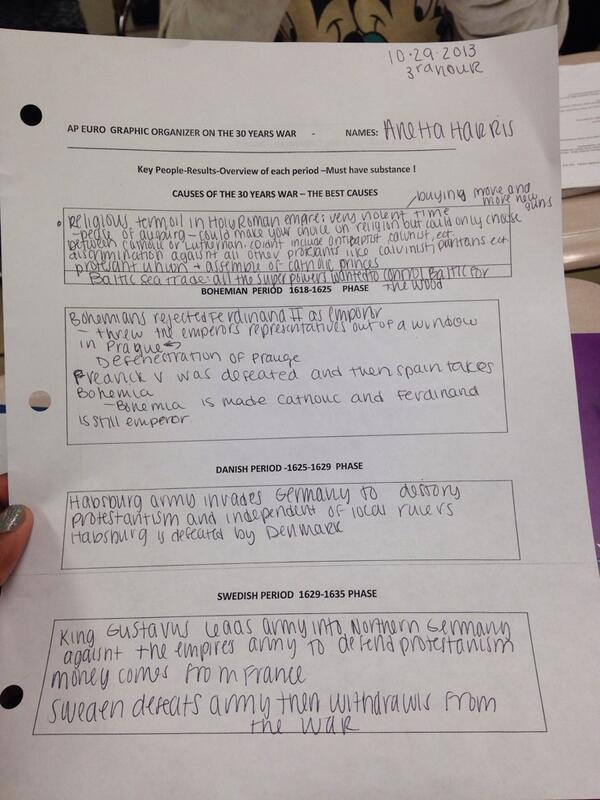 10-29-2013
3rd HOUR
AP EURO GRAPHIC ORGANIZER ON THE 30 YEARS WAR - NAMES: Anetta Harris
Key People-Results-Overview of each period –Must have substance !
CAUSES OF THE 30 YEARS WAR – THE BEST CAUSES
buying more and
more new
guns
Religious termoil in Holy Roman empire: very violent time
-peace of augburg - could make your choice on religion but could only choose
between catholic or Lutheran. couldnt include antibaptist, calunist, ect.
discrimination against all other protestants like calvinist, puritans ect
protestant union + assemble of catholic princes
Baltic Sea trade: all the super powers wanted to control Baltic for
the wood
BOHEMIAN PERIOD 1618-1625 PHASE
Bohemians rejected Ferdinand II as emporor
- threw the emperors representatives out of a window
in Prague
Defenestration of Prauge
Fredrick V was defeated and then spain takes
Bohemia
- Bohemia is made catholic and Ferdinand
is still emperor
DANISH PERIOD -1625-1629 PHASE
Habsburg army invades Germany to distory
protestantism and independent of local rulers
Habsburg is defeated by Denmark
SWEDISH PERIOD 1629-1635 PHASE
King Gustavus leads army into Northern Germany
agaisnt the empires army to defend protestanism
money comes from France
Sweden defeats army then withdrawls from
the war